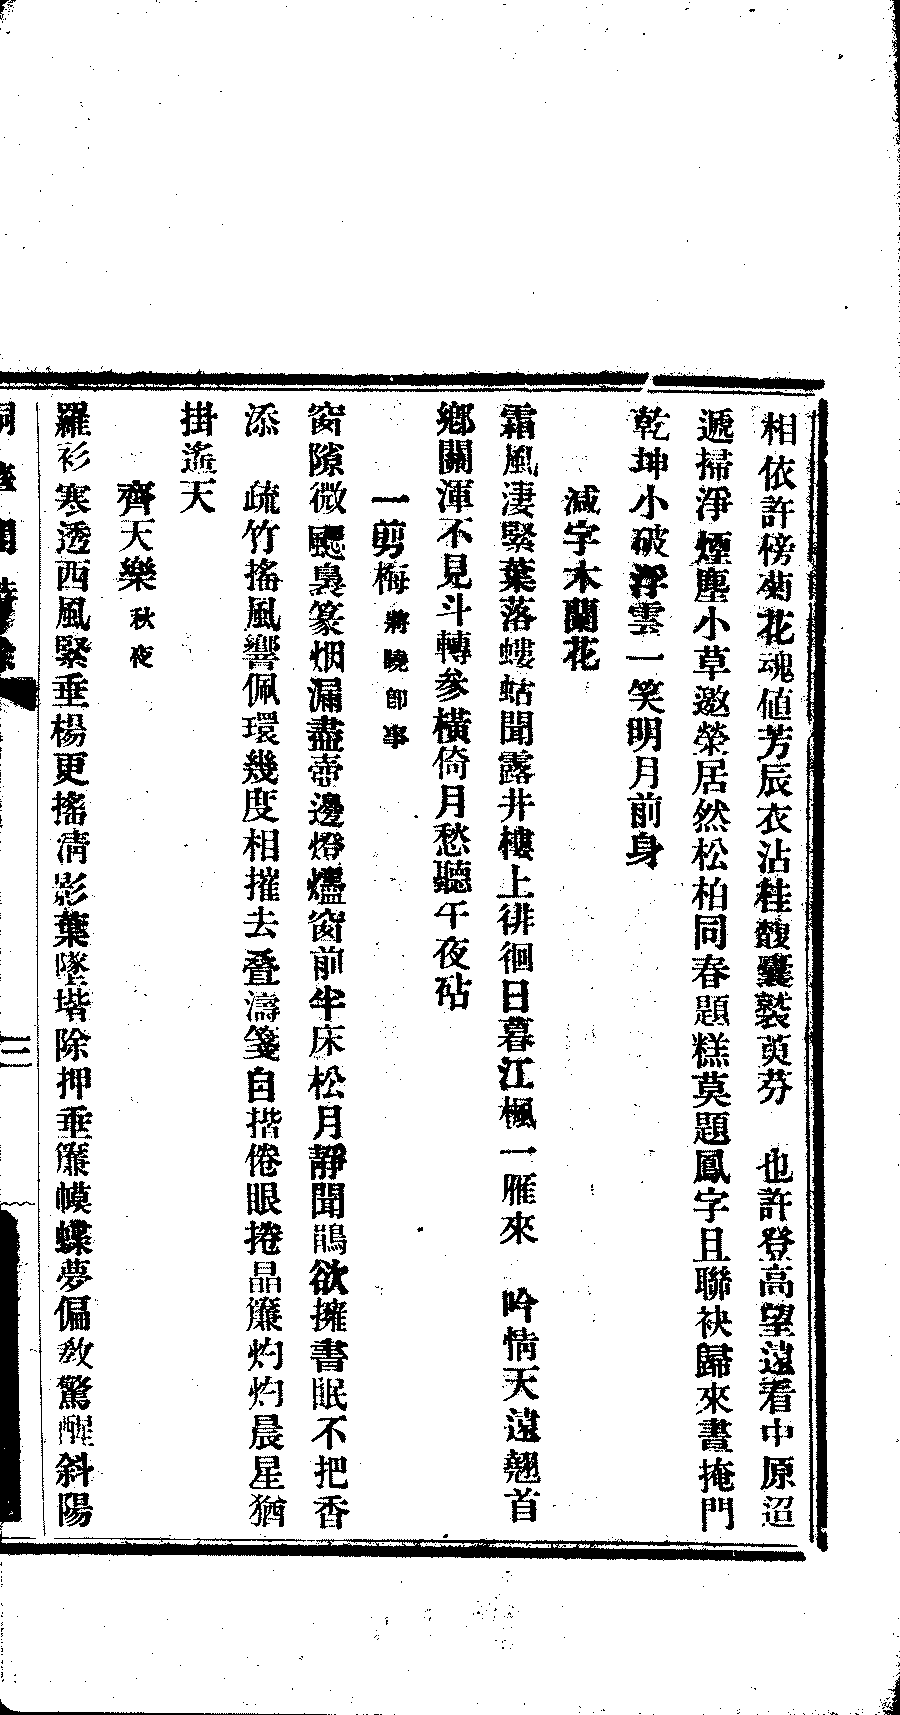 相依許傍菊花魂値芳辰衣沾桂馥囊襲萸芬　也許登高望遠看中原迢
遞掃淨煙塵小草邀榮居然松柏同春題糕莫題鳳字且聯袂歸來晝掩門
乾坤小破浮雲一笑明月前身
減字木蘭花
霜風淒緊葉落螻蛄聞露井樓上徘徊日暮江楓一雁來　吟情天遠翹首
鄉關渾不見斗轉參橫倚月愁聽午夜砧
一剪梅將曉卽事
窗隙微颸裊篆烟漏盡壺邊燈燼窗前半床松月靜聞鵑欲擁書眠不把香
添　疏竹搖風響佩環幾度相摧去疊濤箋自揩倦眼捲晶簾灼灼晨星猶
掛遙天
齊天樂秋夜
羅衫寒透西風緊垂楊更搖淸影葉墜堦除押垂簾幙蝶夢偏敎驚醒斜陽
三